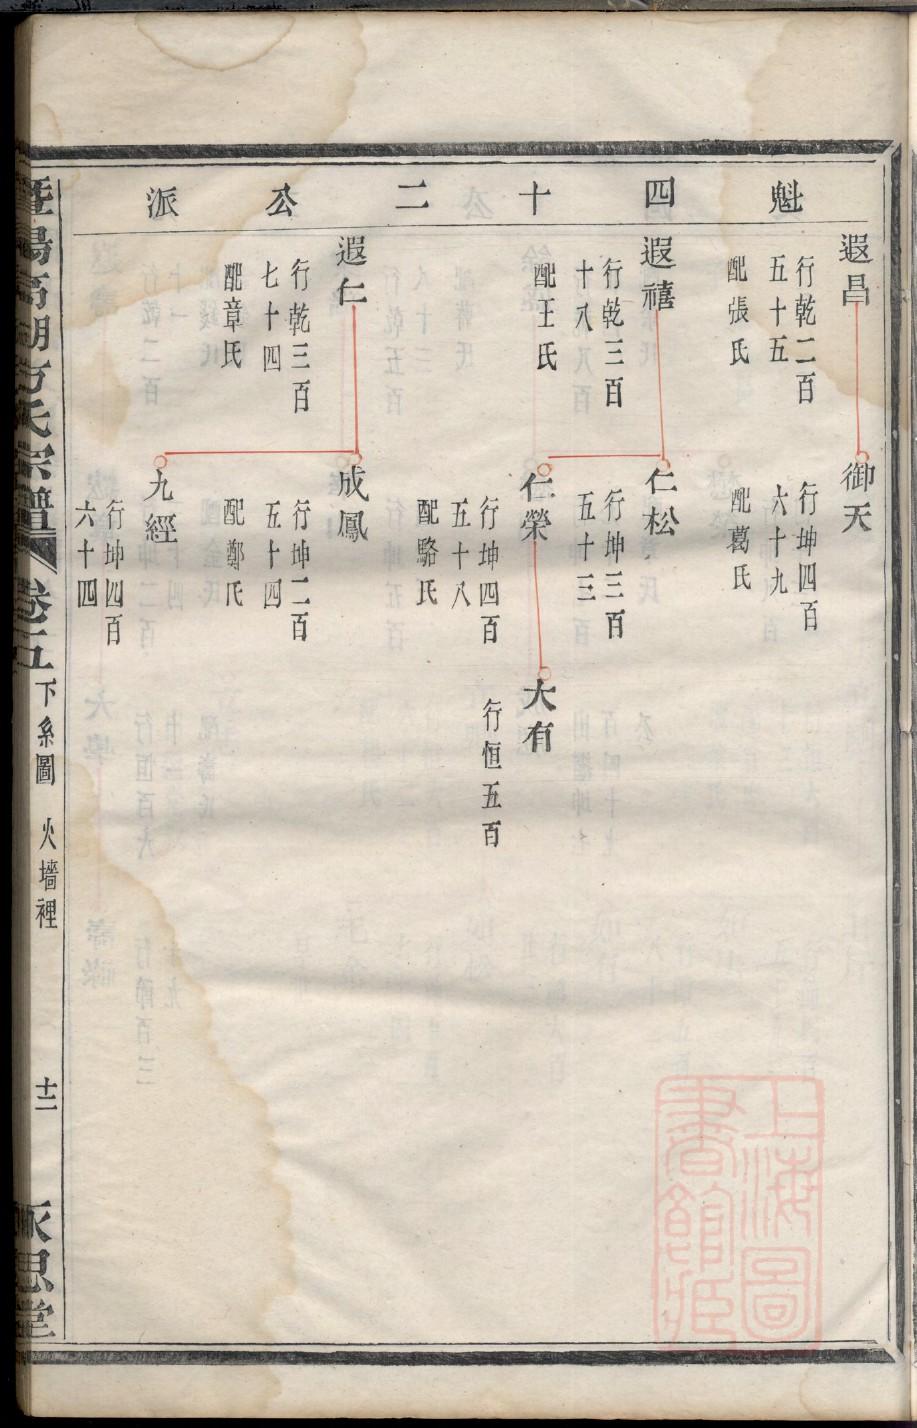 魁四十二公派
遐昌
行乾二百
五十五
配張氏
御天
行坤四百
六十九
配葛氏
遐禧
行乾三百
十八
配王氏
仁松
行坤三百
五十三
仁榮
行坤四百
五十八
配駱氏
大有
行恒五百
遐仁
行乾三百
七十四
配章氏
成鳳
行坤二百
五十四
配鄭氏
九經
行坤四百
六十四
暨陽高湖方氏宗譜
卷五
下系圖
火墻裡
十二
永思堂
上海圖書館藏